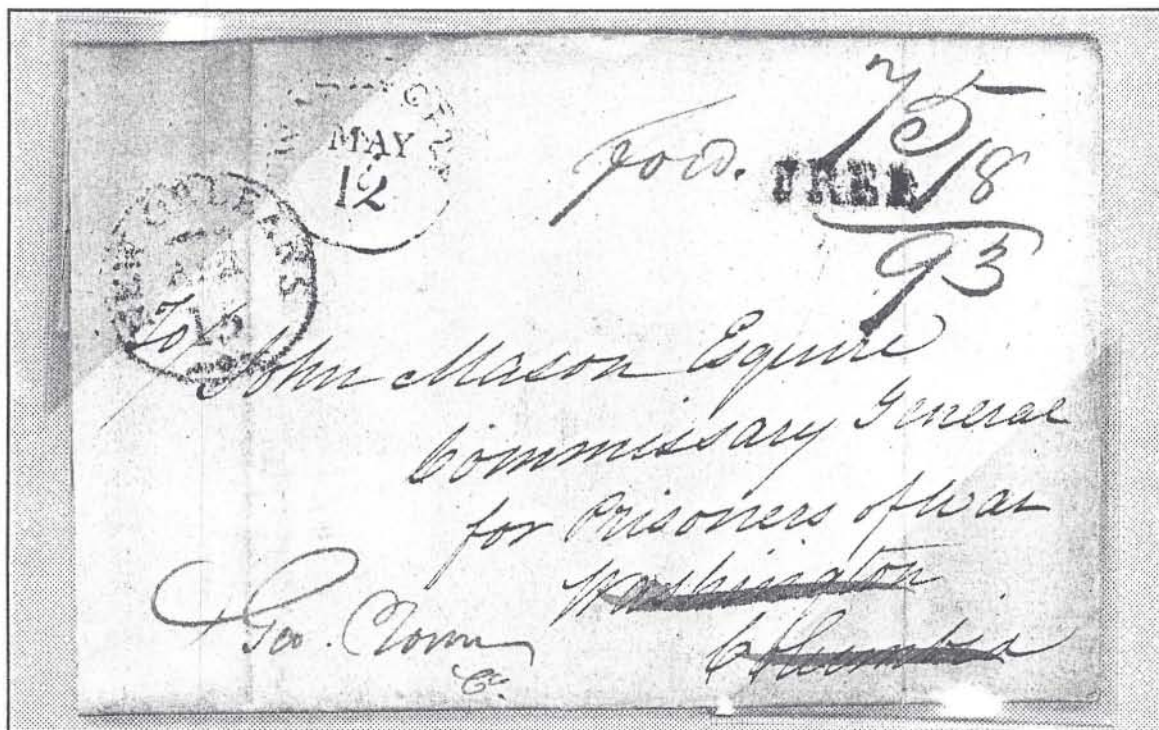 MAY
12
NEW ORLEANS
Ford.
FREE
75
18
93
To John Mason Esquire
Commissary General
for Prisoners of War
Washington
Columbia
Geo. Town